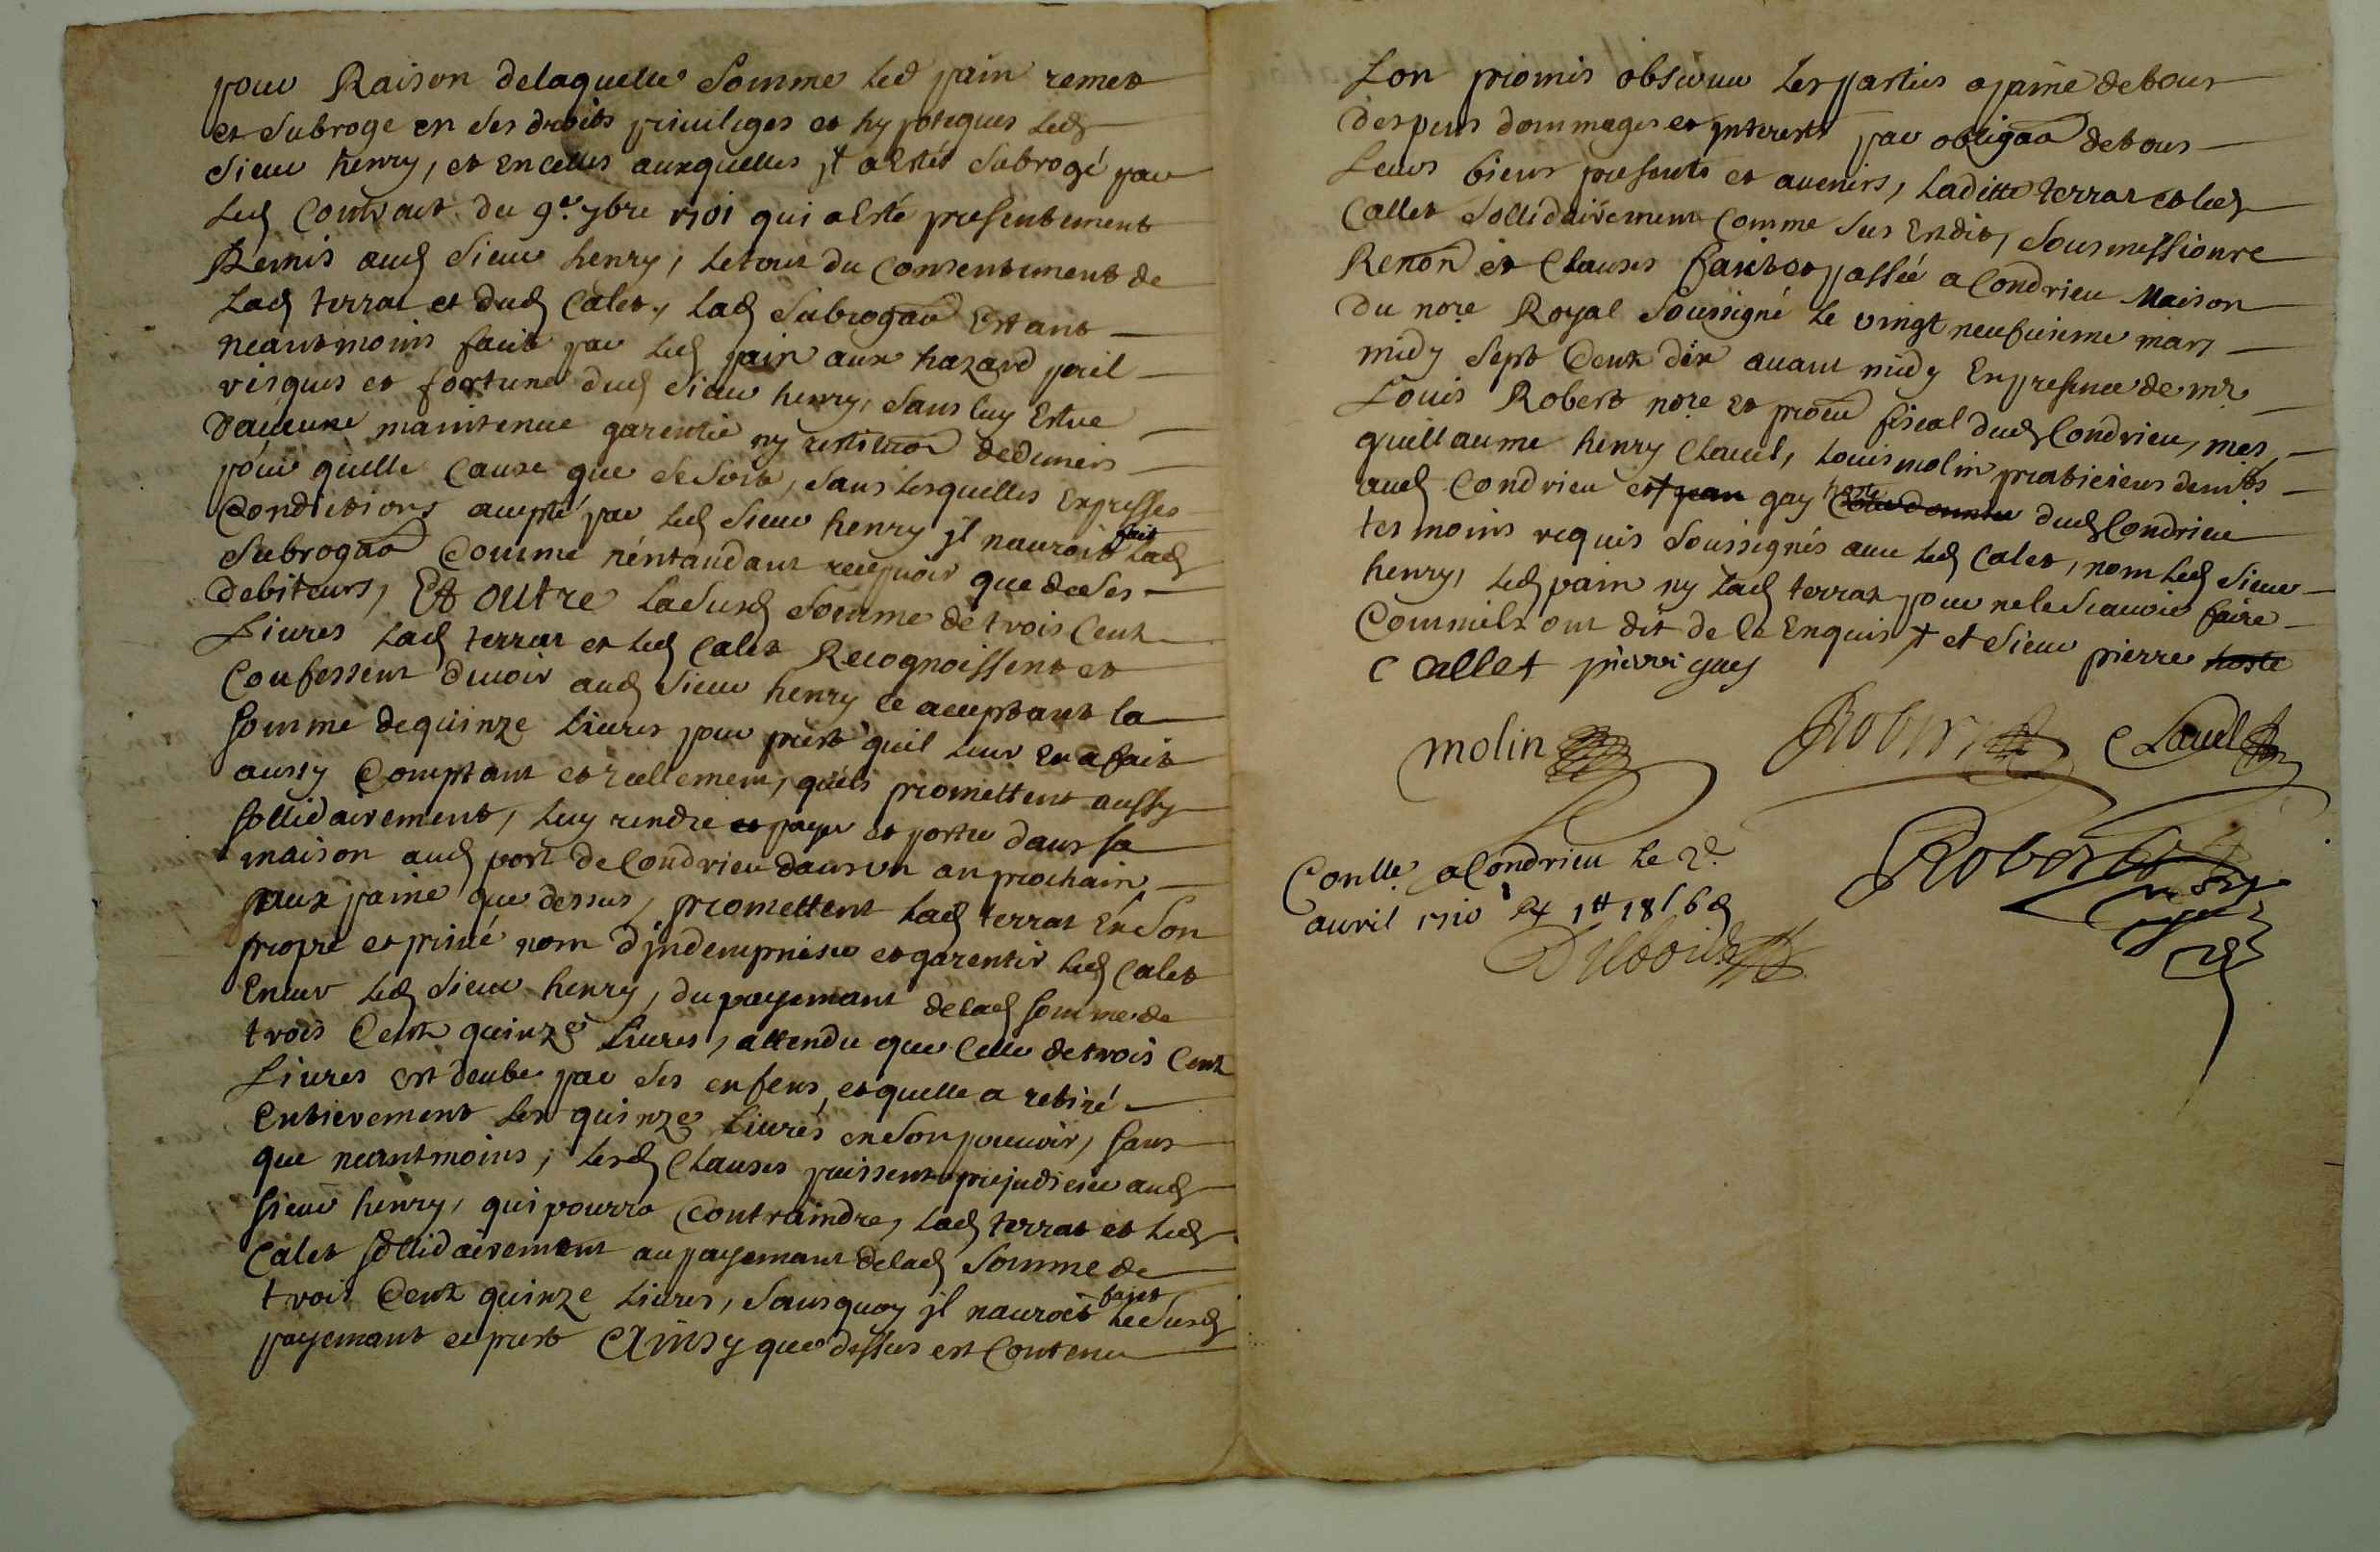 pour Raison delaquelle Somme led pain remet
et Subroge en ses droits priuileges et hypoteques led
sieur henry, et en celles auxquelles jl a Estés Subrogé par
led Contract du 9e. 7bre 1701 qui a Esté presentement
Remis aud Sieur henry, letout du Consentement de
Lad terrat et dud Calet, lad Subrogaõn Estant
neantmoins fait par led pain aux hazard peril
risques et fortune dud Sieur henry, Sans luy Estre
D'aucune maintenue garentie ny restituõn dedeniers
pour quelle Cause que se soit, Sans lesquelles Expresses
Conditions accepté par led Sieur henry jl nauroit fait lad
Subrogaõn Comme n'entandant recepuoir que de ses
debiteurs, Et outre Lasusd Somme de trois Cent
Liures Lad terrat et led Calet Recognoissent et
Confessent deuoir aud Sieur henry ce acceptant la
somme dequinze Liures pour prest quil leur En a fait
aussy Comptant et reellement, quils promettent aussy
sollidairement, luy rendre et payer et porter dans sa
maison aud port de Condrieu dans vn an prochain
aux paine que dessus, promettent lad terrat En son
propre et priué nom d'jndempniser et garentir led Calet
Enuer led Sieur henry, du payemant delad somme de
trois Cent quinze Liures, attendu que Celle de trois Cent
Liures est deube par ses enfens, et quelle a retiré
Entierement les quinze Liures en son pouuoir, sans
que neantmoins, lesd Clauses puissent prejudicier aud
sieur henry, qui pourra Contraindre, lad terrat et led
Calet sollidairement au payemant delad Somme de
trois Cent quinze Liures, Sans quoy jl nauroit fajct le Susd
payemant et prest Ainsy que dessus est Contenu
Lon promis obseruer les parties a paine de tous
Despens dommages et jnterests par obligaõn detous
Leurs biens presents et auenirs, Laditte terrat et led
Callet Sollidairement Comme sus Est dit, Sousmessionre
Renon et Clauses faict et passée a Condrieu Maison
du nore Royal Soussigné le vingt neufuieme mars
midy Sept Cent dix auant midy En presence de mr
Louis Robert nore et procu fiscal dud Condrieu, mes
guillaume henry Clauel, Louis molin praticiens demts
aud Condrieu et jean gay hoste dud Condrieu
tesmoins requis Soussignés auec led Calet, nom led Sieur
henry, led pain ny lad terrat pour ne le Scauoir faire
Commils ont dit de ce Enquis et Sieur pierre hoste
C Callet pierre gay
molin Robert Clauel
Robert
Conlle a Condrieu le 2e.
auril 1710 R 1tt 18s 6d
Dubouis